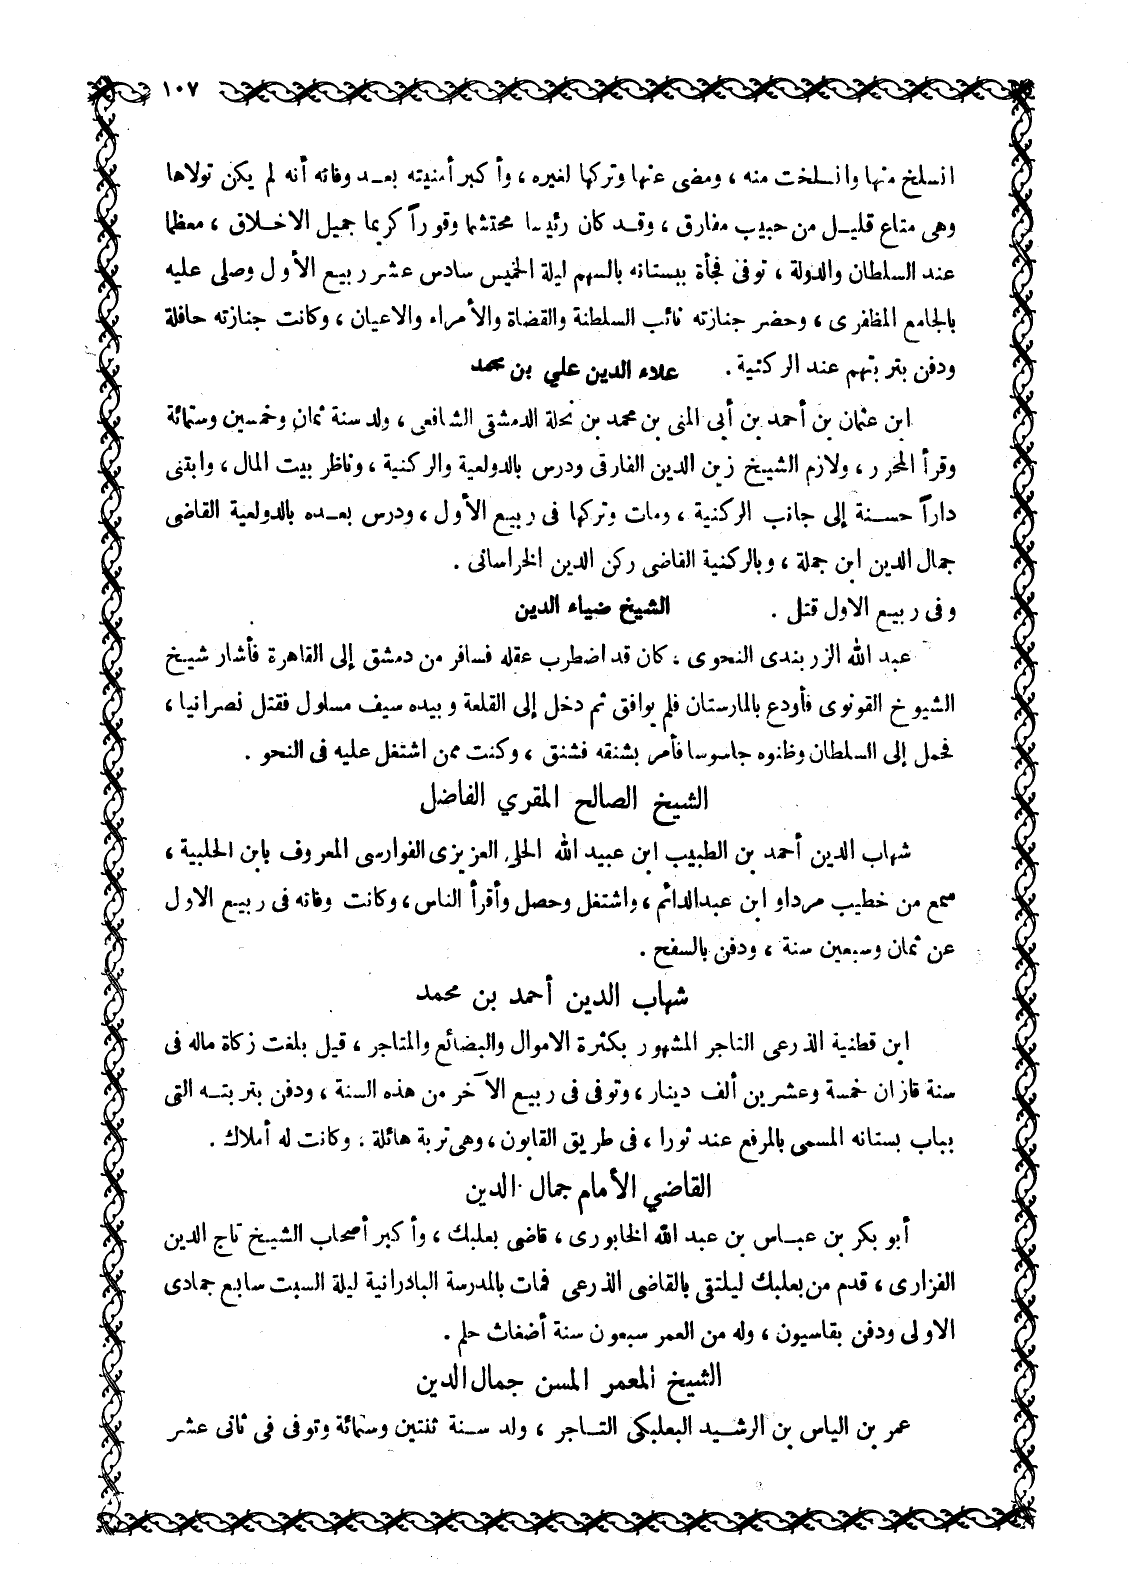 ١٠٧
انسلخ منها وانسلخت منه ، ومضى عنها وتركها لغيره ، وأكبر أمنيته بعد وفاته أنه لم يكن تولاها
وهى متاع قليل من حبيب مفارق ، وقد كان رئيسا محتشما وقوراً كريما جميل الاخلاق ، معظما
عند السلطان والدولة ، توفى فجأة ببستانه بالسهم ليلة الخميس سادس عشر ربيع الأول وصلى عليه
بالجامع المظفرى ، وحضر جنازته نائب السلطنة والقضاة والأمراء والاعيان ، وكانت جنازته حافلة
ودفن بتربتهم عند الركنية . علاء الدين علي بن محمد
ابن عثمان بن أحمد بن أبى المنى بن محمد بن نحلة الدمشقى الشافعى ، ولد سنة ثمان وخمسين وستمائة
وقرأ المحرر ، ولازم الشيخ زين الدين الفارقى ودرس بالدولعية والركنية ، وناظر بيت المال ، وابتنى
داراً حسنة إلى جانب الركنية ، ومات وتركها فى ربيع الأول ، ودرس بعده بالدولعية القاضى
جمال الدين ابن جملة ، وبالركنية القاضى ركن الدين الخراسانى .
وفى ربيع الاول قتل . الشيخ ضياء الدين
عبد الله الزربندى النحوى ، كان قد اضطرب عقله فسافر من دمشق إلى القاهرة فأشار شيخ
الشيوخ القونوى فأودع بالمارستان فلم يوافق ثم دخل إلى القلعة وبيده سيف مسلول فقتل نصرانيا ،
فحمل إلى السلطان وظنوه جاسوسا فأمر بشنقه فشنق ، وكنت ممن اشتغل عليه فى النحو .
الشيخ الصالح المقري الفاضل
شهاب الدين أحمد بن الطبيب ابن عبيد الله الحلى العزيزى الفوارسى المعروف بابن الحلبية ،
سمع من خطيب مردا و ابن عبدالدائم ، واشتغل وحصل وأقرأ الناس ، وكانت وفاته فى ربيع الاول
عن ثمان وسبعين سنة ، ودفن بالسفح .
شهاب الدين أحمد بن محمد
ابن قطنية الذرعى التاجر المشهور بكثرة الاموال والبضائع والمتاجر ، قيل بلغت زكاة ماله فى
سنة قازان خمسة وعشرين ألف دينار ، وتوفى فى ربيع الآخر من هذه السنة ، ودفن بتربته التى
بباب بستانه المسمى بالمرفع عند ثورا ، فى طريق القابون ، وهى تربة هائلة . وكانت له أملاك .
القاضي الأمام جمال الدين
أبو بكر بن عباس بن عبد الله الخابورى ، قاضى بعلبك ، وأكبر أصحاب الشيخ تاج الدين
الفزارى ، قدم من بعلبك ليلتقى بالقاضى الذرعى فمات بالمدرسة البادرانية ليلة السبت سابع جمادى
الاولى ودفن بقاسيون ، وله من العمر سبعون سنة أضغاث حلم .
الشيخ المعمر المسن جمال الدين
عمر بن الياس بن الرشيد البعلبكى التاجر ، ولد سنة ثنتين وستمائة وتوفى فى ثانى عشر